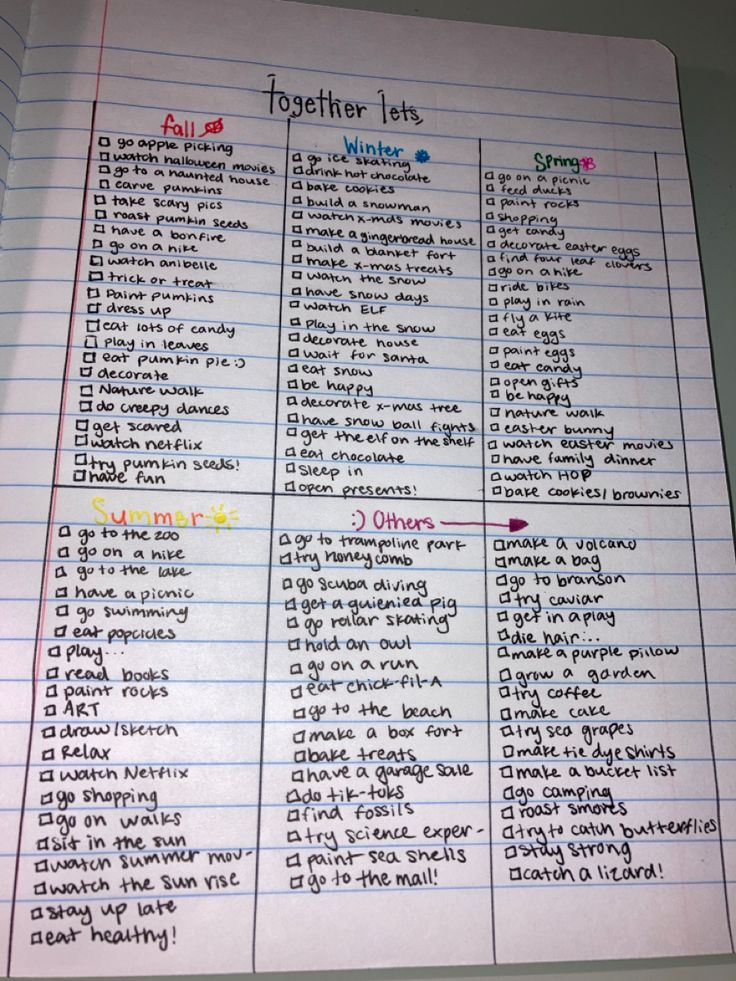 Together lets,
fall
go apple picking
watch halloween movies
go to a haunted house
carve pumkins
take scary pics
roast pumkin seeds
have a bonfire
go on a hike
watch anibelle
trick or treat
Paint pumkins
dress up
eat lots of candy
play in leaves
eat pumkin pie :)
decorate
Nature walk
do creepy dances
get scared
watch netflix
try pumkin seeds!
have fun
Winter
go ice skating
drink hot chocolate
bake cookies
build a snowman
watch x-mas movies
make a gingerbread house
build a blanket fort
make x-mas treats
watch the snow
have snow days
watch ELF
play in the snow
decorate house
wait for santa
eat snow
be happy
decorate x-mas tree
have snow ball fights
get the elf on the shelf
eat chocolate
sleep in
open presents!
Spring
go on a picnic
feed ducks
paint rocks
shopping
get candy
decorate easter eggs
find four leaf clovers
go on a hike
ride bikes
play in rain
fly a kite
eat eggs
paint eggs
eat candy
open gifts
be happy
nature walk
easter bunny
watch easter movies
have family dinner
watch HOP
bake cookies/brownies
Summer
go to the zoo
go on a hike
go to the lake
have a picnic
go swimming
eat popcicles
play...
read books
paint rocks
ART
draw/sketch
Relax
watch Netflix
go shopping
go on walks
sit in the sun
watch summer mov-
watch the sun rise
stay up late
eat healthy!
:) Others
go to trampoline park
try honeycomb
go scuba diving
get a guienied pig
go rollar skating
hold an owl
go on a run
eat chick-fil-A
go to the beach
make a box fort
bake treats
have a garage sale
do tik-toks
find fossils
try science exper-
paint sea shells
go to the mall!
make a volcano
make a bag
go to branson
try caviar
get in a play
die hair...
make a purple pillow
grow a garden
try coffee
make cake
try sea grapes
make tie dye shirts
make a bucket list
go camping
roast smores
try to catch butterflies
stay strong
catch a lizard!